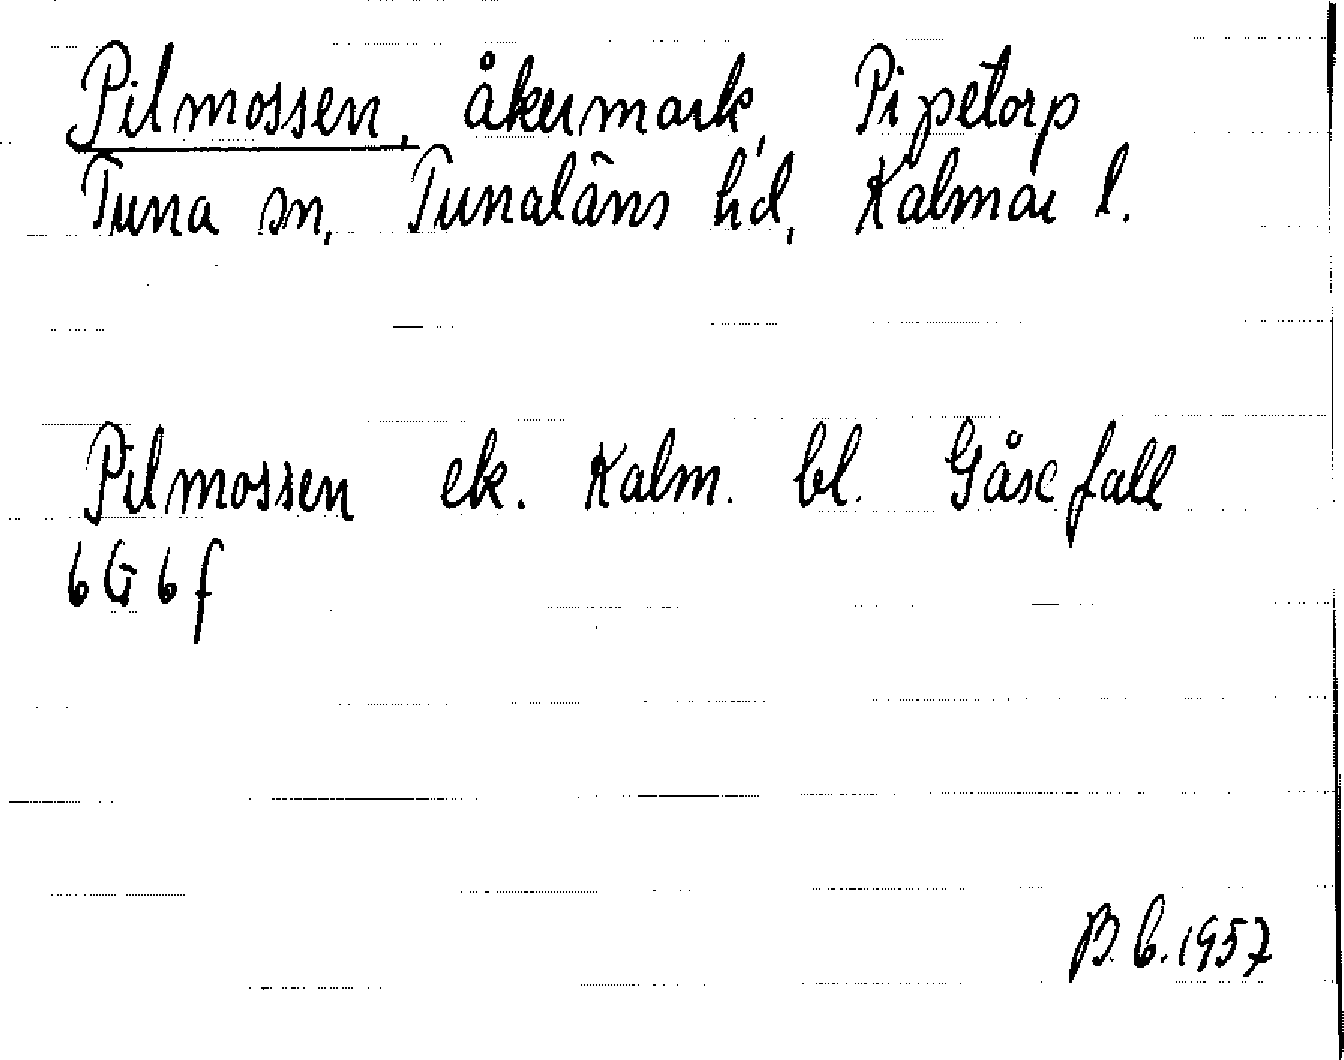 Pilmossen, åkermark, Pipetorp
Tuna sn, Tunaläns hd, Kalmar l.
Pilmossen ek. Kalm. bl. Gåsefall
6G6f
B.b.1957